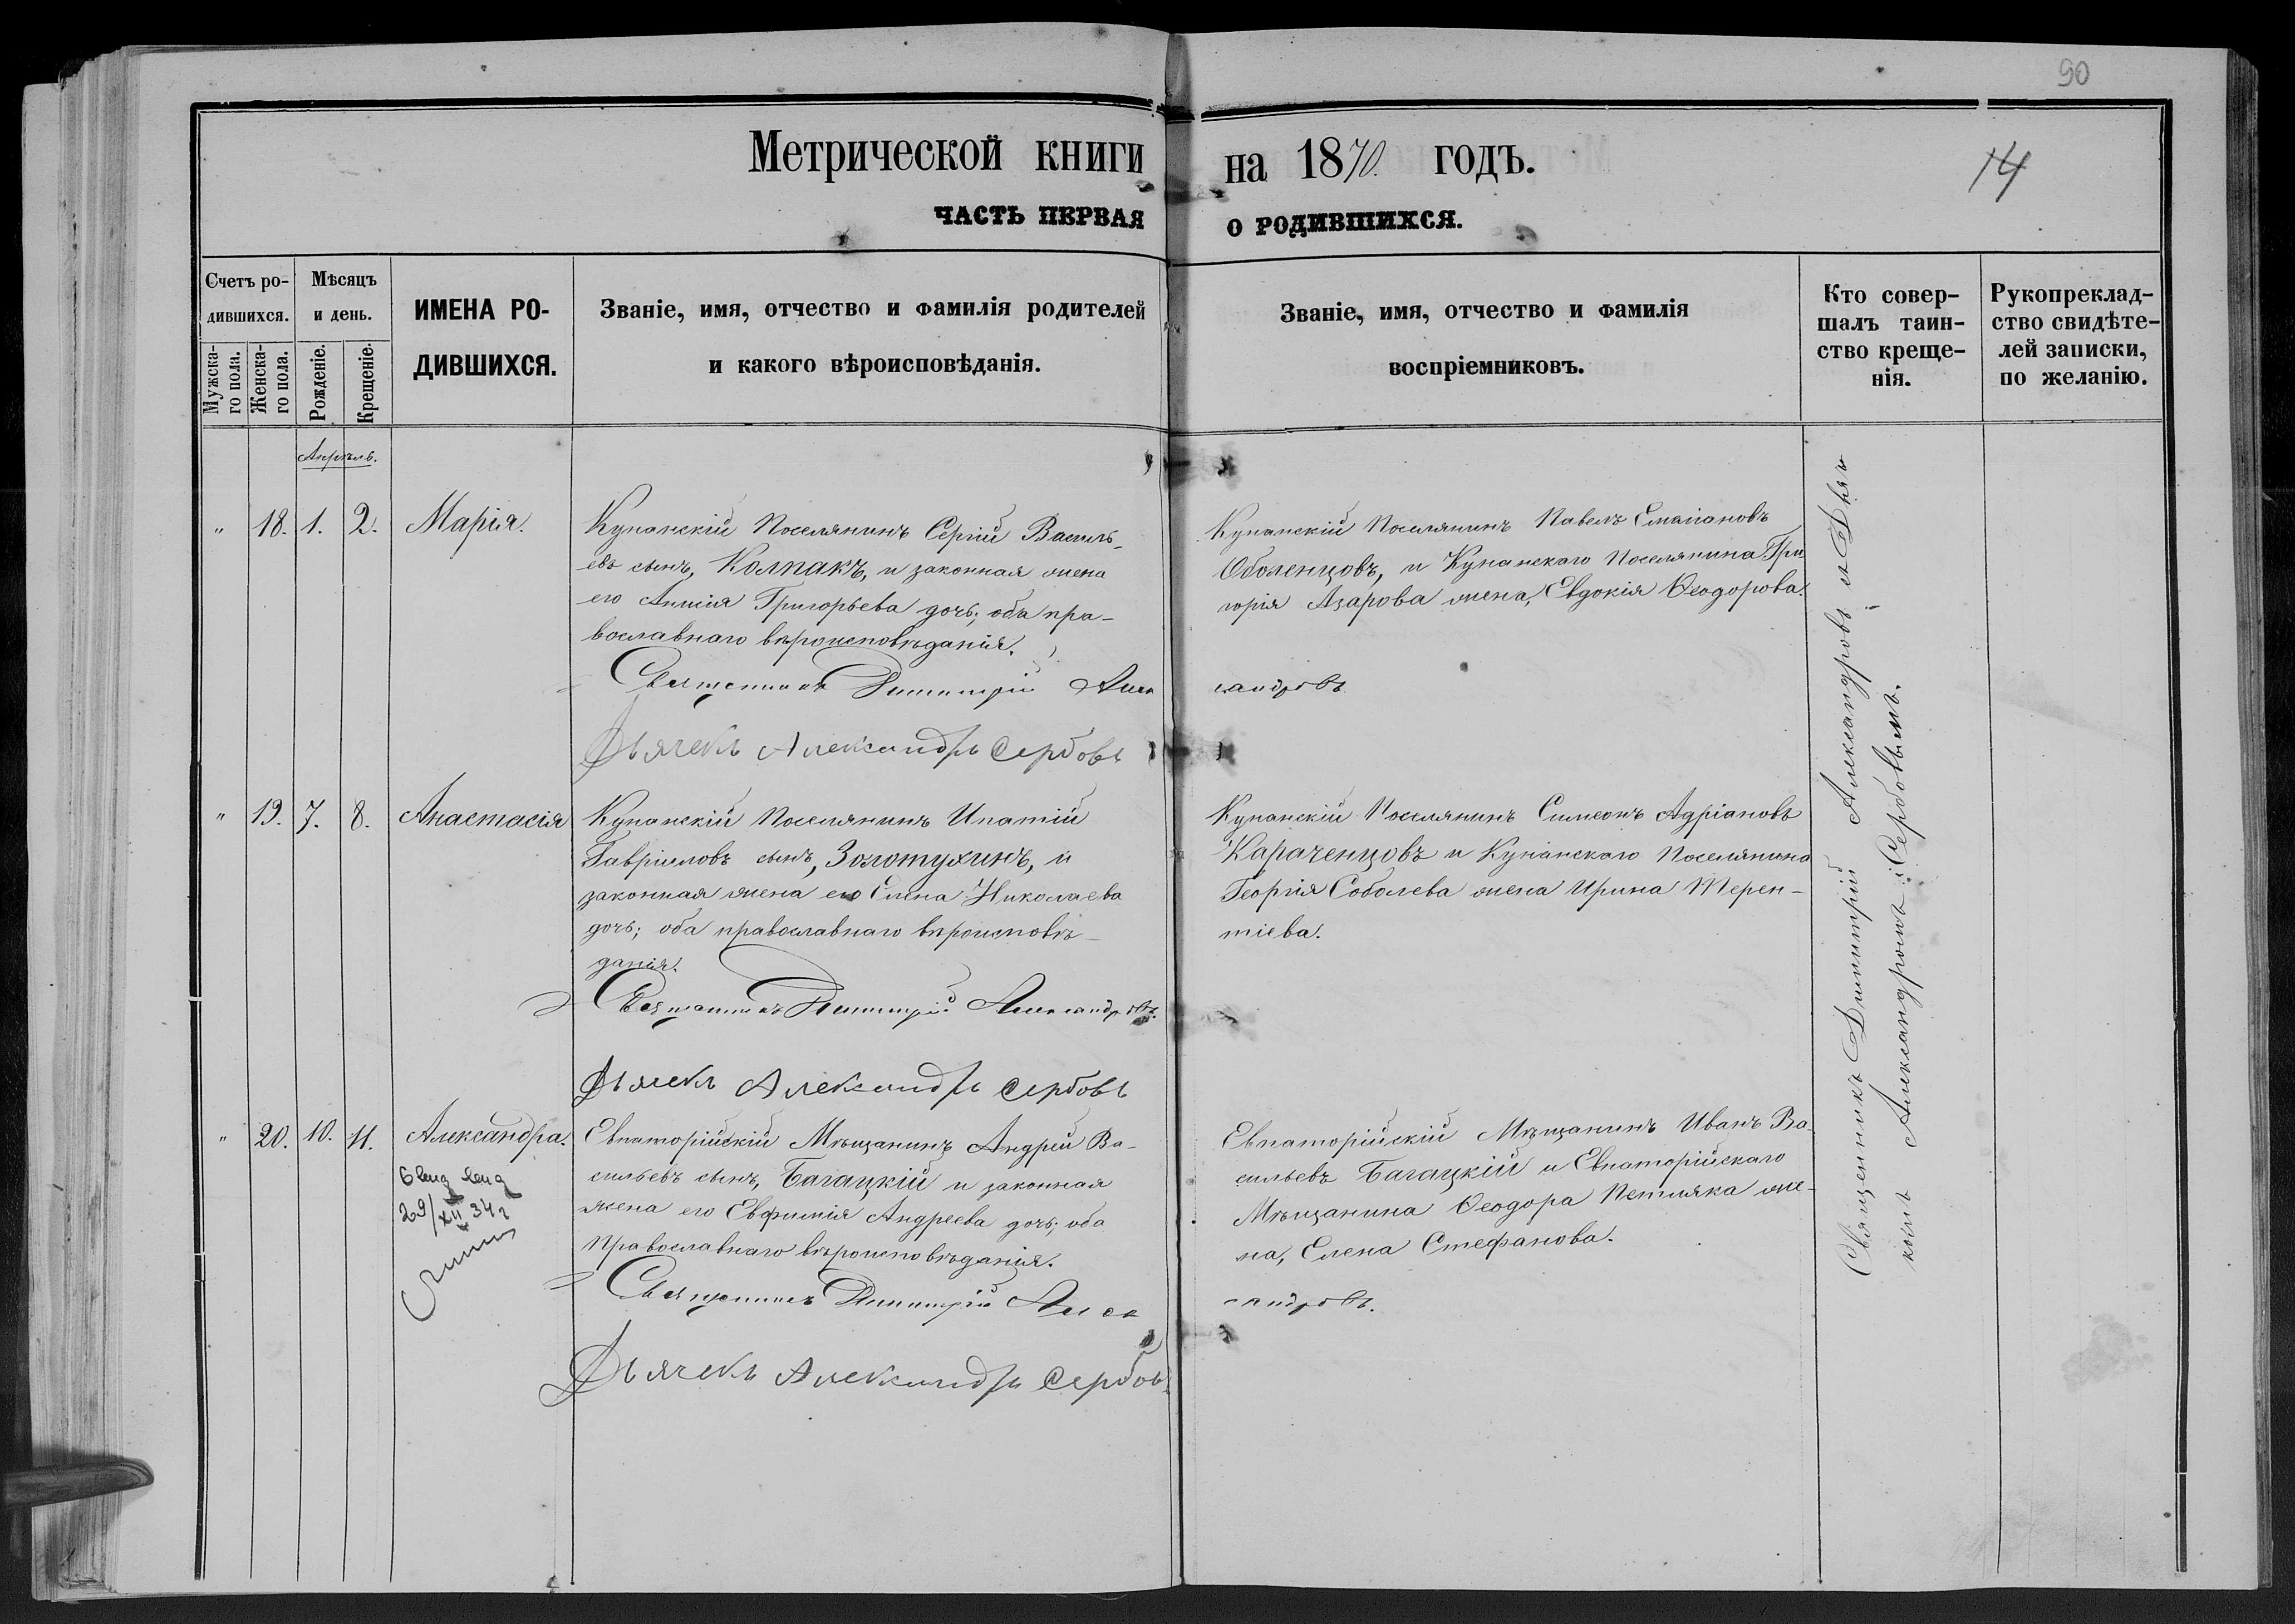 90
Метрической книги на 1870. годъ.
14
ЧАСТЬ ПЕРВАЯ О РОДИВШИХСЯ.
Счетъ ро-
дившихся.
Мужска-
го пола.
Женска-
го пола.
Мѣсяцъ
и день.
Рожденіе.
Крещеніе.
ИМЕНА РО-
ДИВШИХСЯ.
Званіе, имя, отчество и фамилія родителей
и какого вѣроисповѣданія.
Званіе, имя, отчество и фамилія
воспріемниковъ.
Кто совер-
шалъ таин-
ство креще-
нія.
Рукопреклад-
ство свидѣте-
лей записки,
по желанію.
Апрѣль.
" 18. 1. 2. Марія.
Кунанскій Поселянинъ Сергій Василь-
евъ сынъ, Колпакъ, и законная жена
его Григорьева дочь; оба пра-
вославнаго вѣроисповѣданія.
Священникъ Димитрій Алек
сандровъ
Дьячекъ Александръ Сербовъ
Кунанскій Поселянинъ Павелъ
Оболенцовъ, и Кунанскаго Поселянина Гри
горія Азарова жена, Евдокія Ѳеодорова.
" 19. 7. 8. Анастасія
Кунанскій Поселянинъ Ипатій
Гавріиловъ сынъ, Золотухинъ, и
законная жена его Елена Николаева
дочь; оба православнаго вѣроисповѣ-
данія.
Священникъ Димитрій Александровъ.
Дьячекъ Александръ Сербовъ
Кунанскій Поселянинъ Симеонъ Адріановъ
Караченцовъ и Кунанскаго Поселянина
Георгія Соболева жена Ирина Терен-
тіева.
" 20. 10. 11. Александра.
29/XII 34 г
Евпаторійскій Мѣщанинъ Андрей Ва-
сильевъ сынъ, Багацкій и законная
жена его Евфимія Андреева дочь; оба
Православнаго вѣроисповѣданія.
Священникъ Димитрій Алек
сандровъ.
Дьячекъ Александръ Сербовъ
Евпаторійскій Мѣщанинъ Иванъ Ва-
сильевъ Багацкій и Евпаторійскаго
Мѣщанина Ѳеодора Петляка же-
на, Елена Стефанова.
Священникъ Димитрій Александровъ съ Дья
комъ Александромъ Сербовымъ.